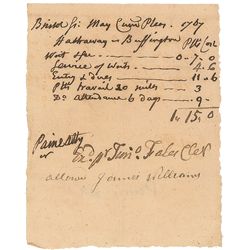 Bristol Ss. May Court Pleas 1767
Hathaway — Buffington Pltfs Cost
Writ &c — 0.7.0
Service of Writ — 4.6
Entry & dues — 11.6
Plts travail 20 miles — 3
Do. Attendance 6 days — 9 -
1.15.0
Paine atty
Exd. pr Timo. Fales Cler
allowd James Williams